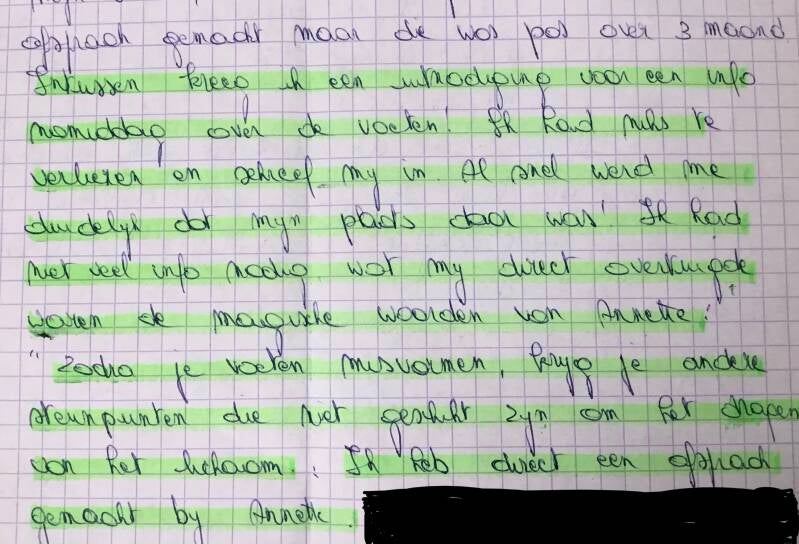 afspraak gemaakt maar de was pas over 3 maand
Intussen kreeg ik een uitnodiging voor een info
namiddag over de voeten! Ik had niks te
verliezen en schreef my in. Al snel werd me
duidelyk dat myn plaats daar was! Ik had
niet veel info nodig, wat my direct overtuigde
waren de magische woorden van Annette:
" Zodra je voeten misvormen, kryg je andere
steunpunten die niet geschikt zyn om het dragen
van het lichaam. Ik heb direct een afspraak
gemaakt by Annette.